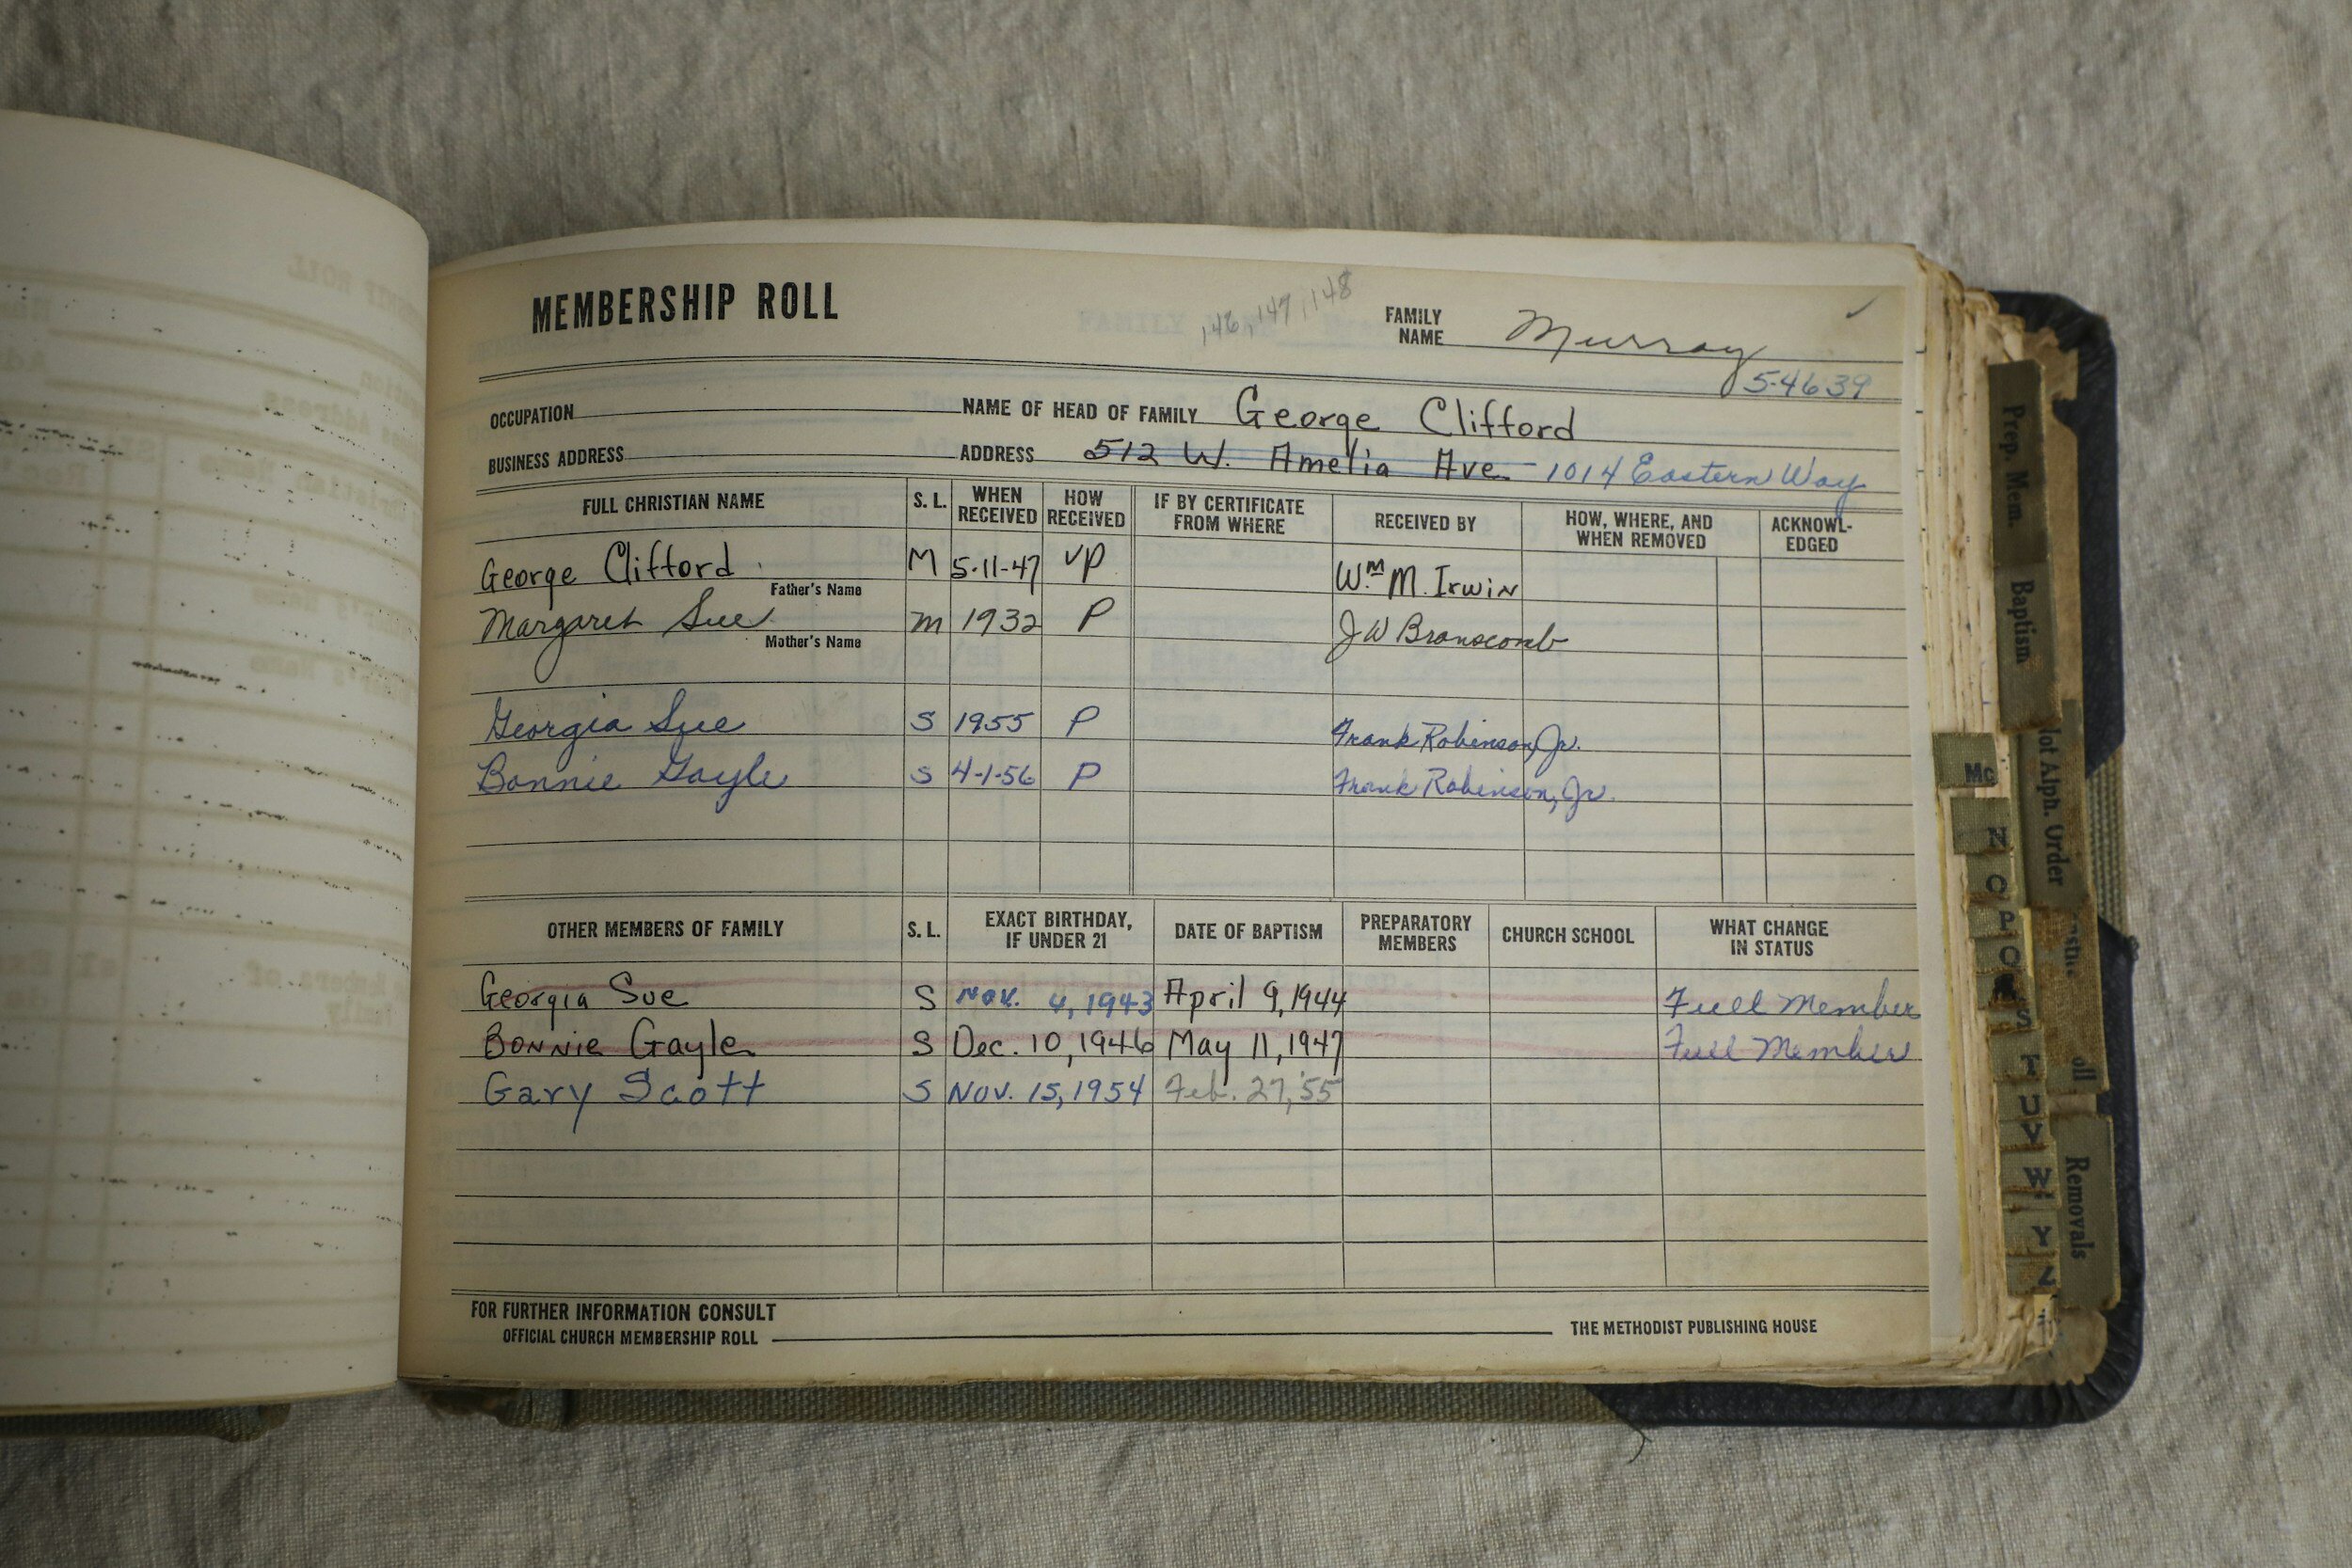 MEMBERSHIP ROLL
146, 147, 148
FAMILY NAME Murray
5-4639
OCCUPATION NAME OF HEAD OF FAMILY George Clifford
BUSINESS ADDRESS ADDRESS 512 W. Amelia Ave. - 1014 Eastern Way
FULL CHRISTIAN NAME S. L. WHEN RECEIVED HOW RECEIVED IF BY CERTIFICATE FROM WHERE RECEIVED BY HOW, WHERE, AND WHEN REMOVED ACKNOWL-EDGED
George Clifford M 5-11-47 VP Wm M. Irwin
Father's Name
Margaret Sue M 1932 P J W Branscomb
Mother's Name
Georgia Sue S 1955 P Frank Robinson, Jr.
Bonnie Gayle S 4-1-56 P Frank Robinson, Jr.
OTHER MEMBERS OF FAMILY S. L. EXACT BIRTHDAY, IF UNDER 21 DATE OF BAPTISM PREPARATORY MEMBERS CHURCH SCHOOL WHAT CHANGE IN STATUS
Georgia Sue S Nov. 4, 1943 April 9, 1944 Full Member
Bonnie Gayle S Dec. 10, 1946 May 11, 1947 Full Member
Gary Scott S Nov. 15, 1954 Feb. 27, '55
FOR FURTHER INFORMATION CONSULT
OFFICIAL CHURCH MEMBERSHIP ROLL THE METHODIST PUBLISHING HOUSE
Prep. Mem.
Baptism
Alph. Order
Removals
Mc
N
O
P
Q
S
T
U
V
W
Y
Z